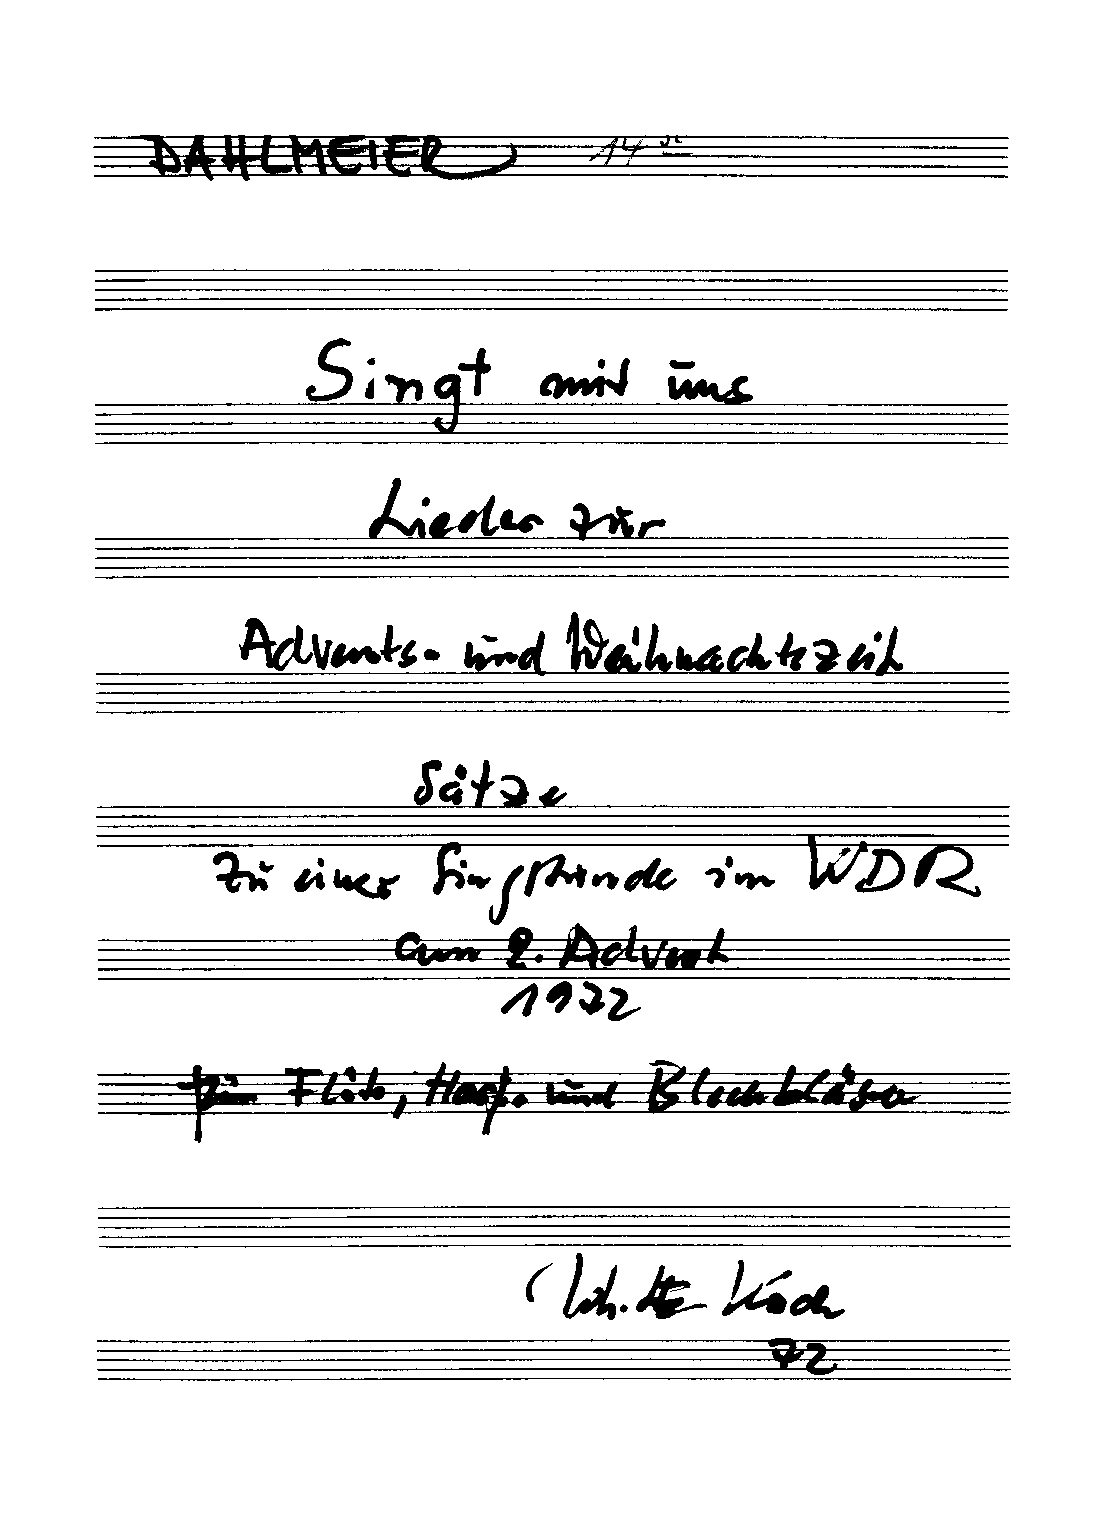 DAHLMEIER 14
Singt mit uns
Lieder zur
Advents- und Weihnachtszeit
Sätze
zu einer Singstunde im WDR
am 2. Advent
1972
für Flöte, Harfe und Blechbläser
Koch
72